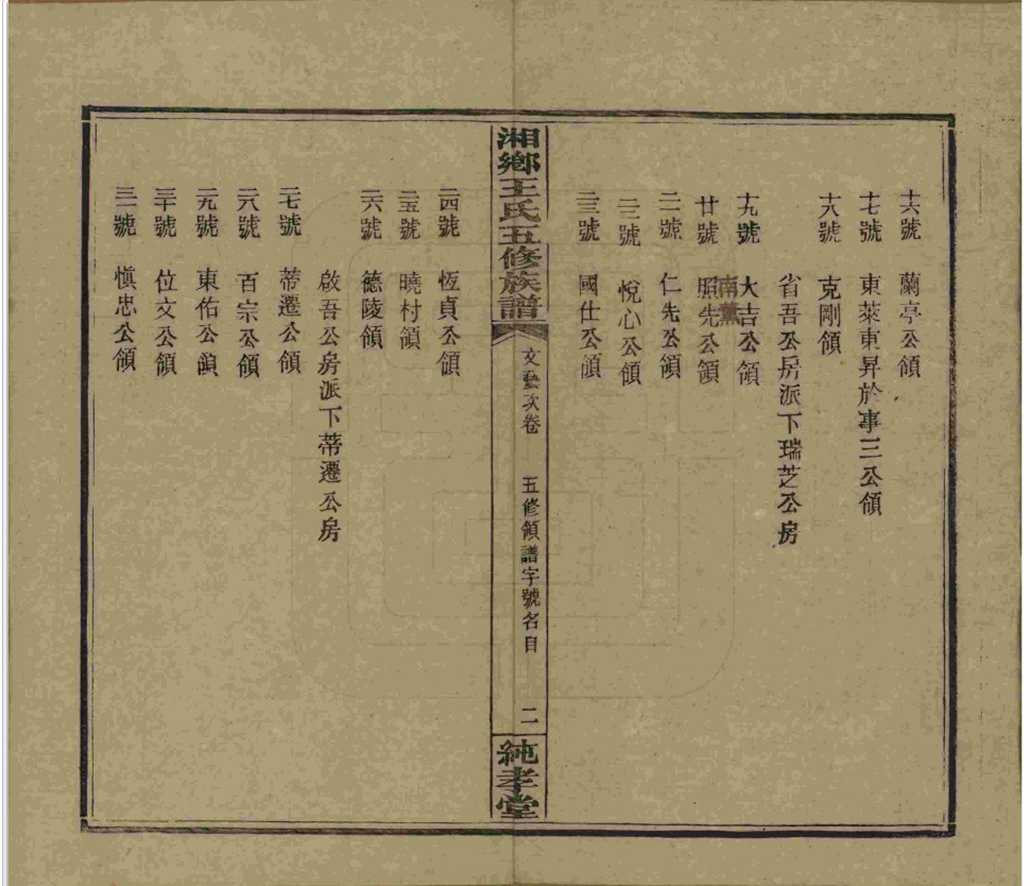 十六號 蘭亭公領
十七號 東萊東昇於事三公領
十八號 克剛領
省吾公房派下瑞芝公房
十九號 大吉公領
南薰
廿號 照先公領
二一號 仁先公領
二二號 悅心公領
二三號 國仕公領
湘鄉王氏五修族譜 文藝次卷 五修領譜字號名目 二 純孝堂
二四號 恆貞公領
二五號 曉村領
二六號 德陵領
啟吾公房派下蒂遷公房
二七號 蒂遷公領
二八號 百宗公領
二九號 東佑公領
三十號 位文公領
三一號 愼忠公領